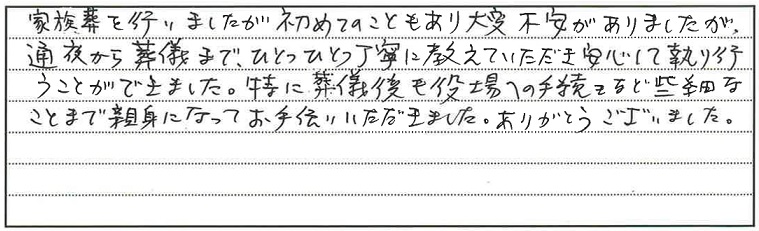 家族葬を行いましたが初めてのこともあり大変不安がありましたが、
通夜から葬儀まで、ひとつひとつ丁寧に教えていただき安心して執り行
うことができました。特に葬儀後も役場への手続きなど些細な
ことまで親身になってお手伝いいただきました。ありがとうございました。